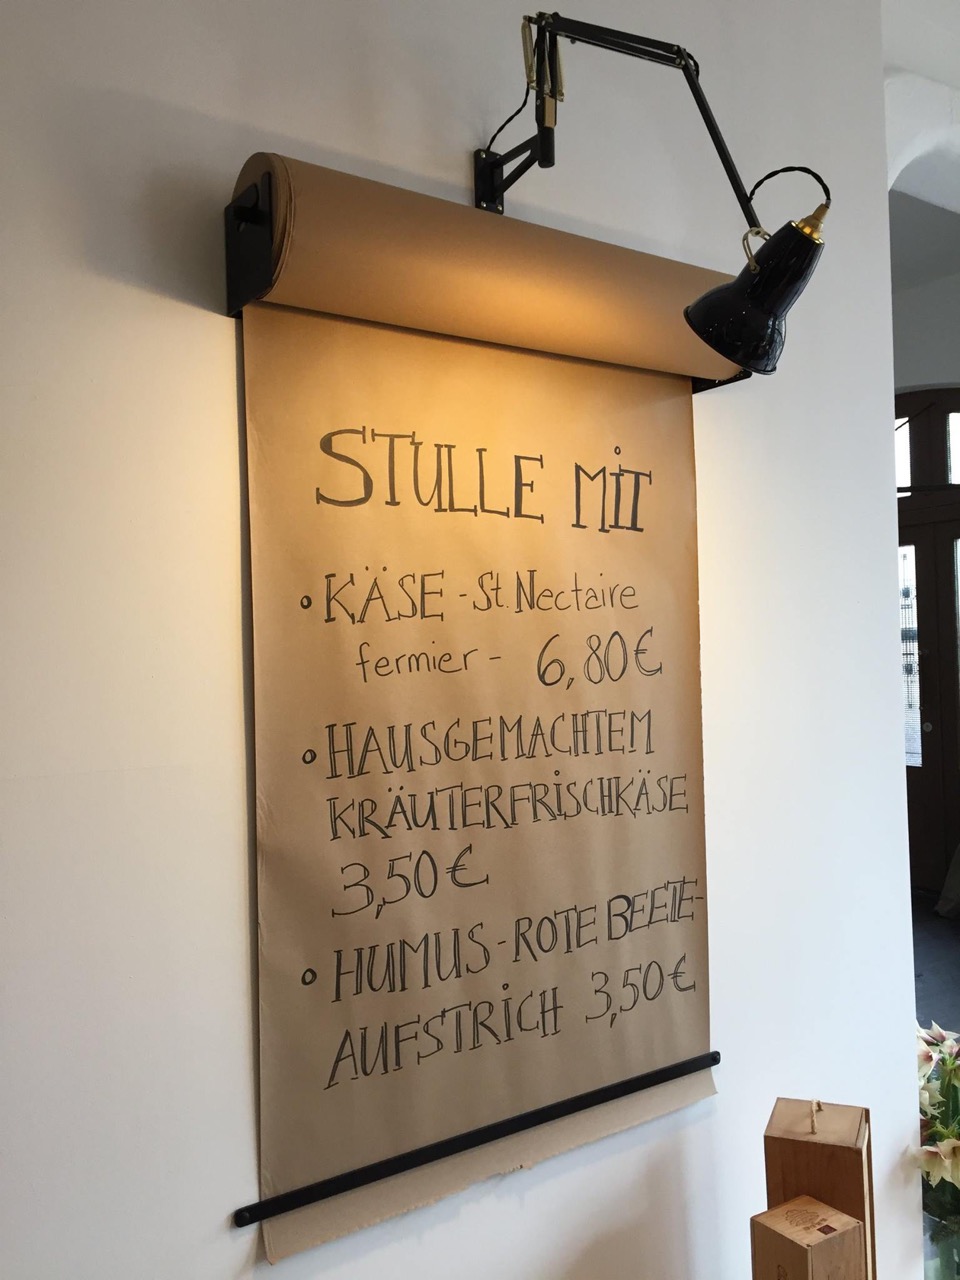 STULLE MIT
• KÄSE - St. Nectaire
fermier - 6,80€
• HAUSGEMACHTEM
KRÄUTERFRISCHKÄSE
3,50€
• HUMUS - ROTE BEETE-
AUFSTRICH 3,50€